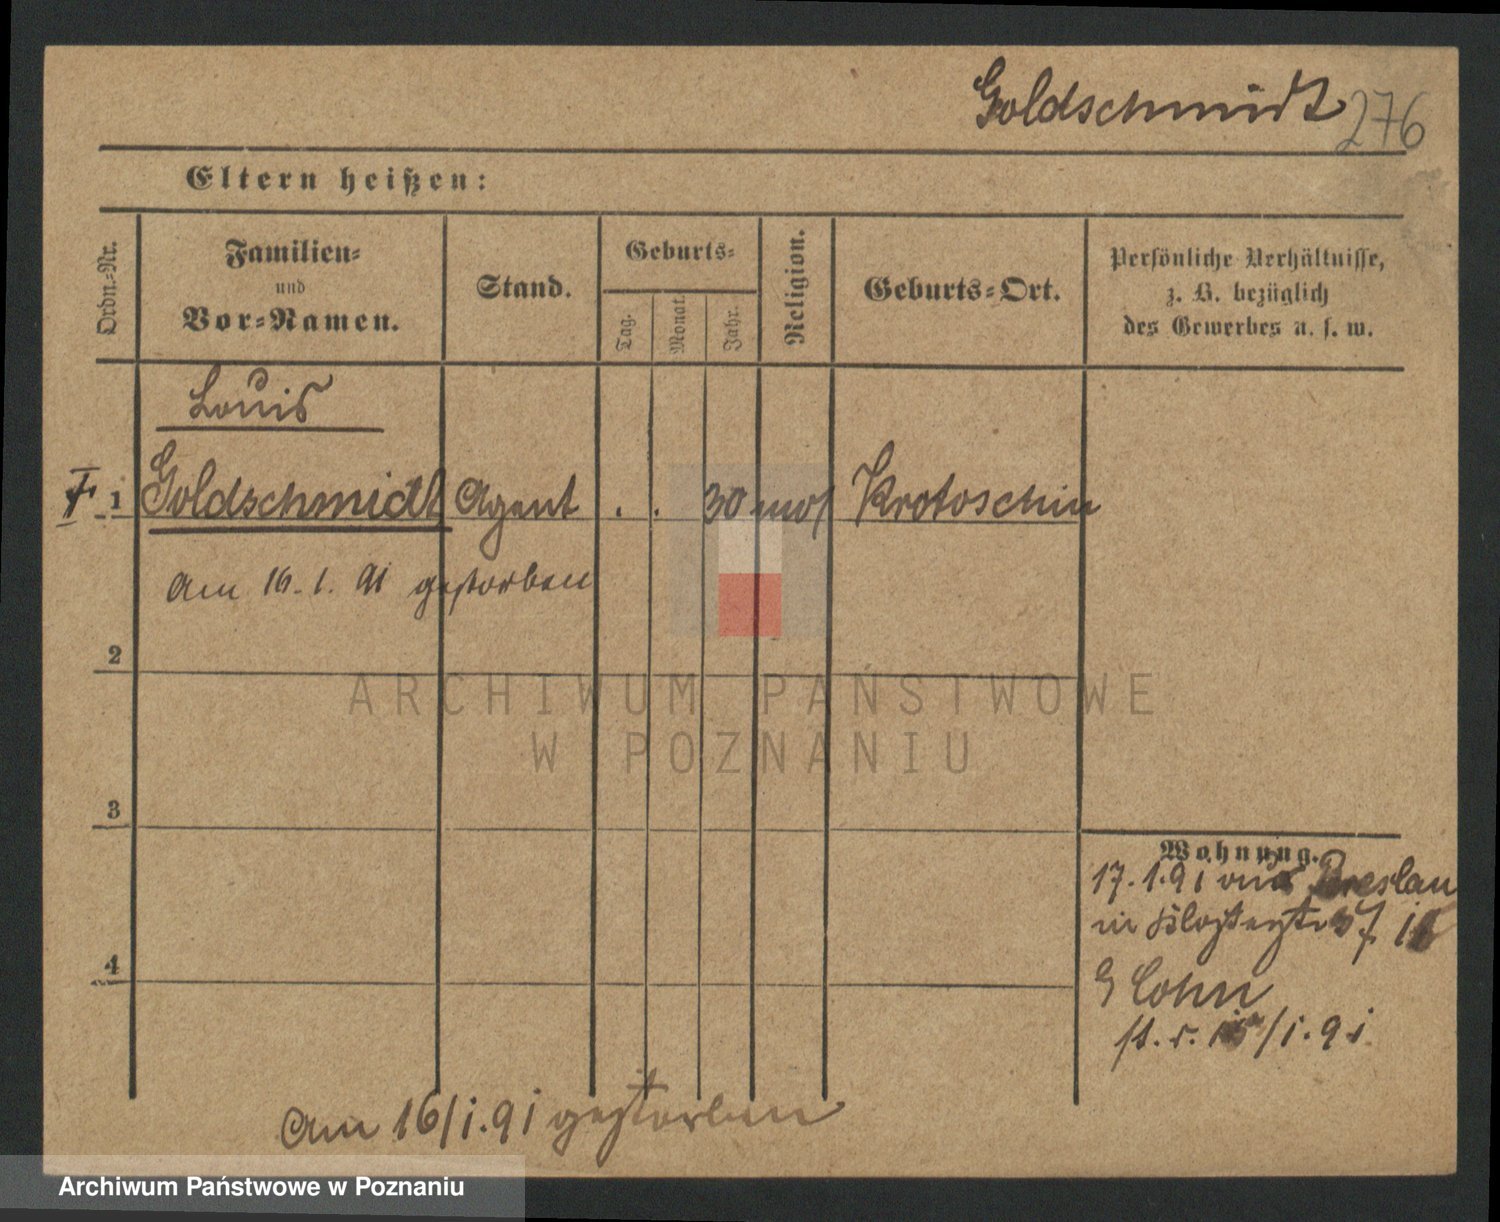 Goldschmidt 276
Eltern heißen:
Ordn.-Nr.
Familien-
und
Vor-Namen.
Stand.
Geburts-
Tag.
Monat.
Jahr.
Religion.
Geburts-Ort.
Persönliche Verhältnisse,
z. B. bezüglich
des Gewerbes u. s. w.
Louis
1 Goldschmidt Agent . . 30 mos Krotoschin
am 16. 1. 91 gestorben
2
ARCHIWUM PAŃSTWOWE
W POZNANIU
3
Wohnung.
17. 1. 91 aus Breslau
in
4
Cohn
/1. 91
am 16/1. 91 gestorben
Archiwum Państwowe w Poznaniu